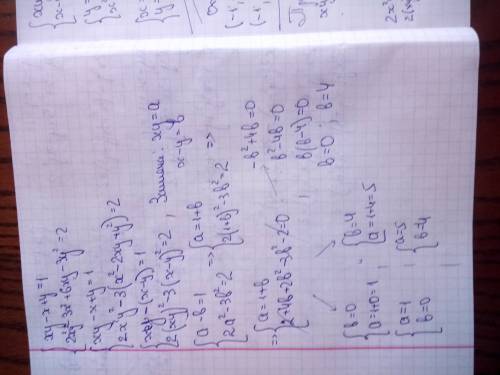 {xy-x+y=1
{2xy²-3x²+6xy-3y²=2
{xy-x+y=1
{2xy²-3(x²-2xy+y²)=2
{xy-(x-y)=1
{2(xy)²-3(x-y)²=2 , Замена: xy=a
x-y=в
{a-в=1
{2a²-3в²=2 => {a=1+в
{2(1+в)²-3в²=2 =>
=> {a=1+в
{2+4в+2в²-3в²-2=0
-в²+4в=0
в²-4в=0
в(в-4)=0
в=0 ; в=4
{в=0
{a=1+0=1 ; {в=4
{a=1+4=5
{a=1
{в=0 ; {a=5
{в=4